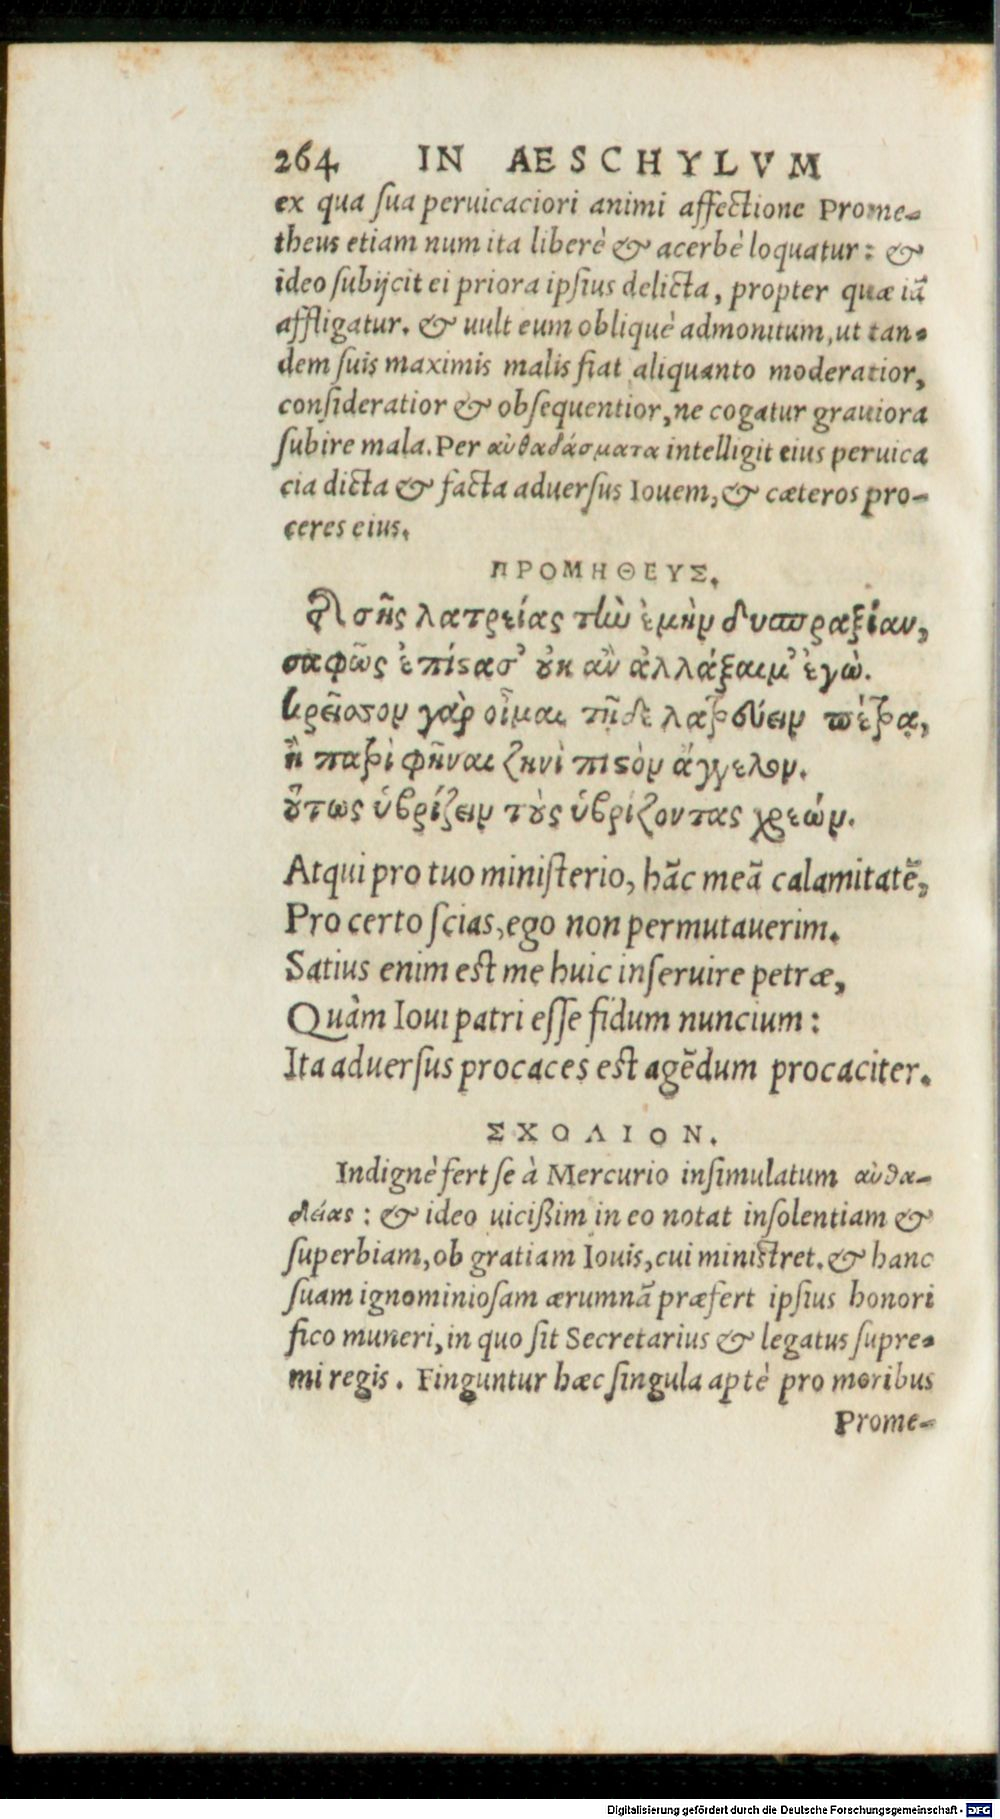 264 IN AESCHYLVM
ex qua sua peruicaciori animi affectione Prome-
theus etiam num ita liberè & acerbè loquatur: &
ideo subijcit ei priora ipsius delicta, propter quæ iā
affligatur. & uult eum obliquè admonitum, ut tan-
dem suis maximis malis fiat aliquanto moderatior,
consideratior & obsequentior, ne cogatur grauiora
subire mala. Per αὐθαδάσματα intelligit eius peruica
cia dicta & facta aduersus Iouem, & cæteros pro-
ceres eius.
ΠΡΟΜΗΘΕΥΣ.
Τῆς σῆς λατρείας τὴν ἐμὴν δυσπραξίαν,
σαφῶς ἐπίστασ' οὐκ ἂν ἀλλάξαιμ' ἐγώ.
κρεῖσσον γὰρ οἶμαι τῇδε λατρεύειν πέτρᾳ,
ἢ πατρὶ φῆναι ζηνὶ πιστὸν ἄγγελον.
οὕτως ὑβρίζειν τοὺς ὑβρίζοντας χρεών.
Atqui pro tuo ministerio, hāc meā calamitatē,
Pro certo scias, ego non permutauerim.
Satius enim est me huic inseruire petræ,
Quàm Ioui patri esse fidum nuncium:
Ita aduersus procaces est agēdum procaciter.
ΣΧΟΛΙΟΝ.
Indignè fert se à Mercurio insimulatum αὐθα-
δείας: & ideo uicißim in eo notat insolentiam &
superbiam, ob gratiam Iouis, cui ministret. & hanc
suam ignominiosam ærumnā præfert ipsius honori
fico muneri, in quo sit Secretarius & legatus supre-
mi regis. Finguntur hæc singula aptè pro moribus
Prome-
Digitalisierung gefördert durch die Deutsche Forschungsgemeinschaft - DFG